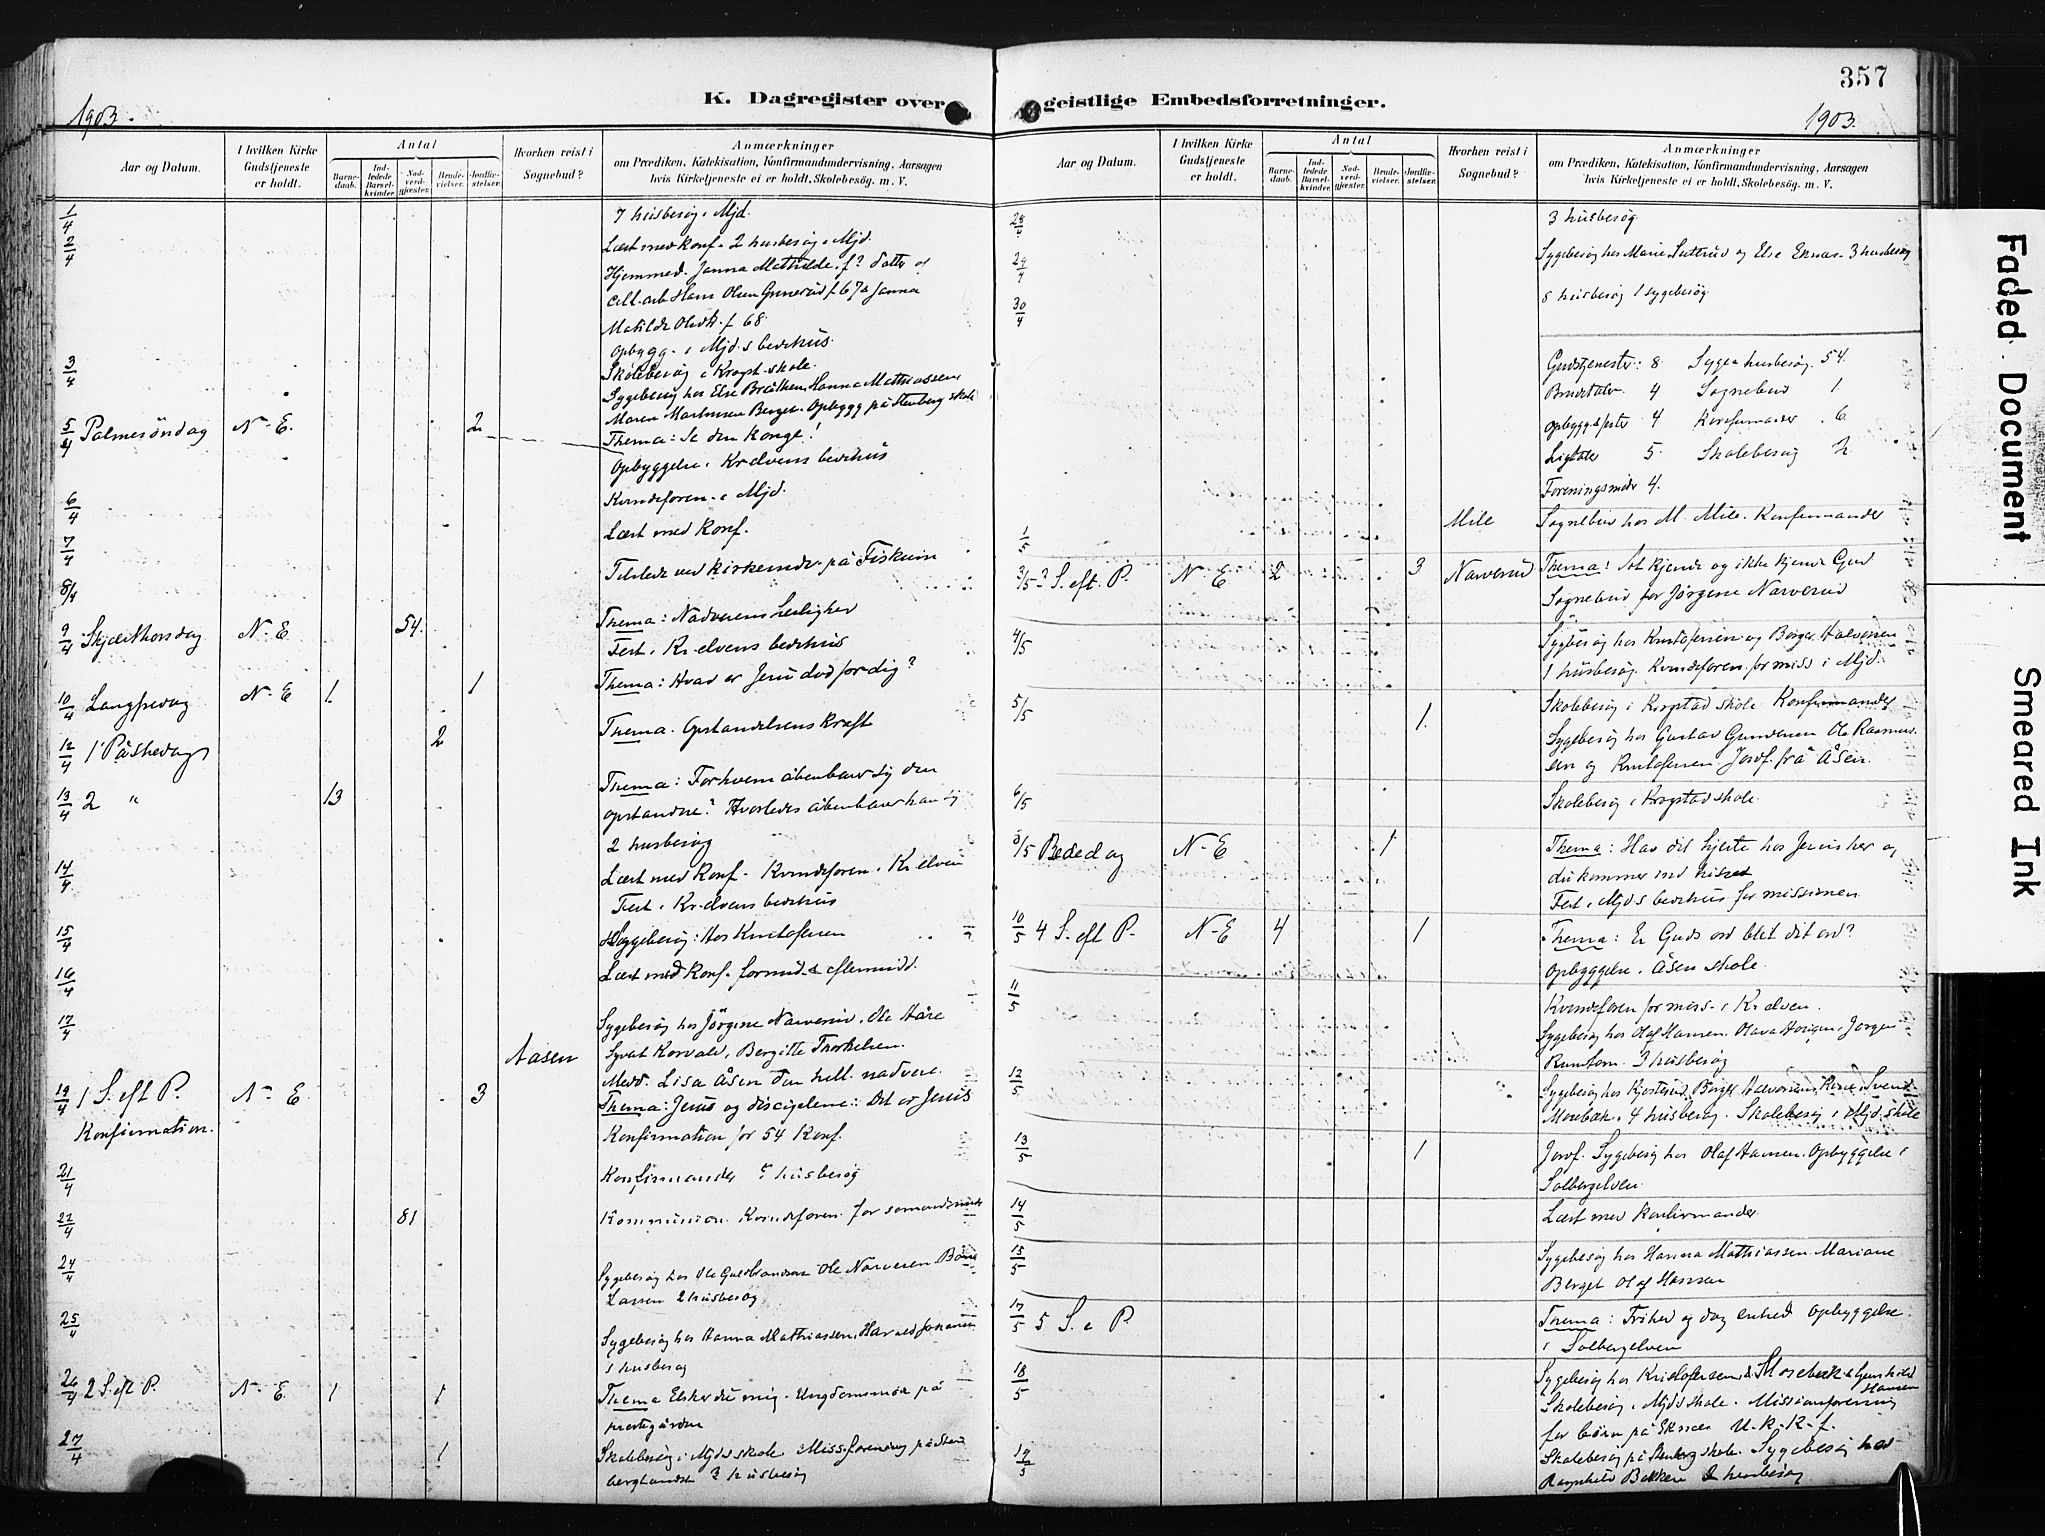 357
K. Dagregister over geistlige Embedsforretninger.
1903.
1903.
Aar og Datum.
I hvilken Kirke Gudstjeneste er holdt.
Antal
Barnedaab.
Indledede Barselkvinder.
Nadverdgjæster.
Brudevielser.
Jordfæstelser.
Hvorhen reist i Sognebud?
Anmærkninger
om Prædiken, Katekisation, Konfirmandundervisning, Aarsagen
hvis Kirketjeneste ei er holdt, Skolebesøg. m. V.
1/4 7 husbesøg i Mjd.
2/4 Læst med konf. 2 husbesøg i Mjd.
Hjemmed. Janna Mathilde, f? datter af
Hans Olsen f. 67 & Janna
Matilde f 68.
Opbygg. i Mjd.s bedehus.
3/4 Skolebesøg i Krogst. skole.
Sygebesøg hos Else Bråthen, Hanna Mathiassen
Maren Berget. Opbygg på Stenberg skole
5/4 Palmesöndag N. E. 2 Thema: Se din konge!
Opbyggelse i Kr.elvens bedehus
6/4 Kvindeforen. i Mjd.
7/4 Læst med konf.
8/4 Tilstede ved kirkemøde på Fiskum
9/4 Skjærthorsdag N. E 54. Thema: Nadverens
Fest i Kr.elvens bedehus
10/4 Langfredag N. E 1 1 Thema: Hvad er Jesu død for dig?
12/4 1 Påskedag 2 Thema. Opstandelsens kraft
13/4 2 " 13 Thema: For hvem åbenbarer sig den
opstandne? Hvorledes åbenbarer han sig
2 husbesøg
14/4 Læst med konf. Kvindeforen. i Kr.elven
Fest i Kr.elvens bedehus
15/4 Sygebesøg: Hos Kristofersen
16/4 Læst med konf. formid. & eftermidd.
17/4 Sygebesøg hos Jörgine Narverud, Ole
Aasen Korvald, Bergitte Thorkelsen.
Medd. Lisa Åsen den hell. nadvere.
19/4 1 S. eft P. N. E. 3 Thema: Jesus og disciplene: Det er Jesus
Konfirmation. Konfirmation for 54 konf.
21/4 Konfirmander husbesøg
22/4 81 Kommunion. Kvindeforen. for
24/4 Sygebesøg hos Ole Guldbrandsen Ole Narvesen
Lassen 2 husbesøg
25/4 Sygebesøg hos Hanna Mathiassen, Johansen
1 husbesøg
26/4 2 S. eft P. N. E. 1 1 Thema Elsker du mig. Ungdomsmøde på
prestegården
27/4 1 Skolebesøg i Mjd.s skole. Miss.forening på
3 husbesøg
Aar og Datum.
I hvilken Kirke Gudstjeneste er holdt.
Antal
Barnedaab.
Indledede Barselkvinder.
Nadverdgjæster.
Brudevielser.
Jordfæstelser.
Hvorhen reist i Sognebud?
Anmærkninger
om Prædiken, Katekisation, Konfirmandundervisning, Aarsagen
hvis Kirketjeneste ei er holdt, Skolebesøg. m. V.
28/4 3 husbesøg
29/4 Sygebesøg hos Marie og Else Eknæs. 3 husbesøg
30/4 8 husbesøg 1 sygebesøg
Gudstjenester: 8 Syge & husbesøg. 54.
Brudetaler 4 Sognebud 1
Opbyggelser 4 Konfirmander 6
Ligtaler 5 Skolebesøg 2
Foreningsmøder 4.
1/5 Mile Sognebud hos M. Mile. Konfirmander
3/5 3 S. eft. P. N E 2 3 Narverud Thema: At kjende og ikke kjende Gud
Sognebud for Jörgine Narverud
4/5 Sygebesøg hos Kristofersen og Borger Halvorsen
1 husbesøg. Kvindeforen. for miss i Mjd.
5/5 1. Skolebesøg i Krogstad skole Konfirmander
Sygebesøg hos Gustav Gundersen Ole Rasmus-
sen og Kristofersen Jordf. fra Åsen.
6/5 Skolebesøg i Krogstad skole
8/5 Bededag N. E 1 Thema: Har dit hjerte hos Jesus her og
du kommer ind
Fest i Mjd.s bedehus for missionen
10/5 4 S. eft P. N. E 4 1 Thema: Er Guds ord blet dit ord?
Opbyggelse i Åsen skole.
11/5 Kvindeforen for miss. i Kr.elven.
Sygebesøg hos Olaf Hansen Jørgen
3 husbesøg
12/5 Sygebesøg hos Borger Halvorsen, Svend
Morebæk. 4 husbesøg. Skolebesøg i Mjd. skole
13/5 1 Jordf. Sygebesøg hos Olaf Hansen. Opbyggelse i
Solbergelven.
14/5 Læst med konfirmander.
15/5 Sygebesøg hos Hanna Mathiassen Mariane
Berget Olaf Hansen
17/5 5 S. e P. Thema: Frihed og enhed Opbyggelse
i Solbergelven
18/5 Sygebesøg hos Kristofersen, Morebæk & Gunhild
Hansen
Skolebesøg i Mjd.s skole. Missionsforening
for børn på Eknæs U. K. K. f.
19/5 Skolebesøg på Stenberg skole. Sygebesøg hos
Ragnhild Bakken 2 husbesøg
Faded Document
Smeared Ink